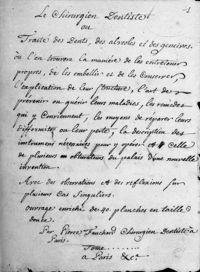 1
Le Chirurgien Dentiste
ou
Traité des Dents, des alvéoles et des gencives.
où l'on trouvera la manière de les entretenir
propres, de les embellir et de les conserver,
l'explication de leur structure, l'art de
prévenir ou guérir leurs maladies, les remèdes
qui y conviennent, les moyens de réparer leurs
difformités ou leur perte, la description des
instruments nécessaires pour y opérer et celle
de plusieurs obturateurs du palais d'une nouvelle
invention.
Avec des observations et des réflexions sur
plusieurs cas singuliers.
ouvrage enrichi de 40 planches en taille
douce.
Par Pierre Fauchard Chirurgien Dentiste à
Paris.
Tome .........
à Paris &c.